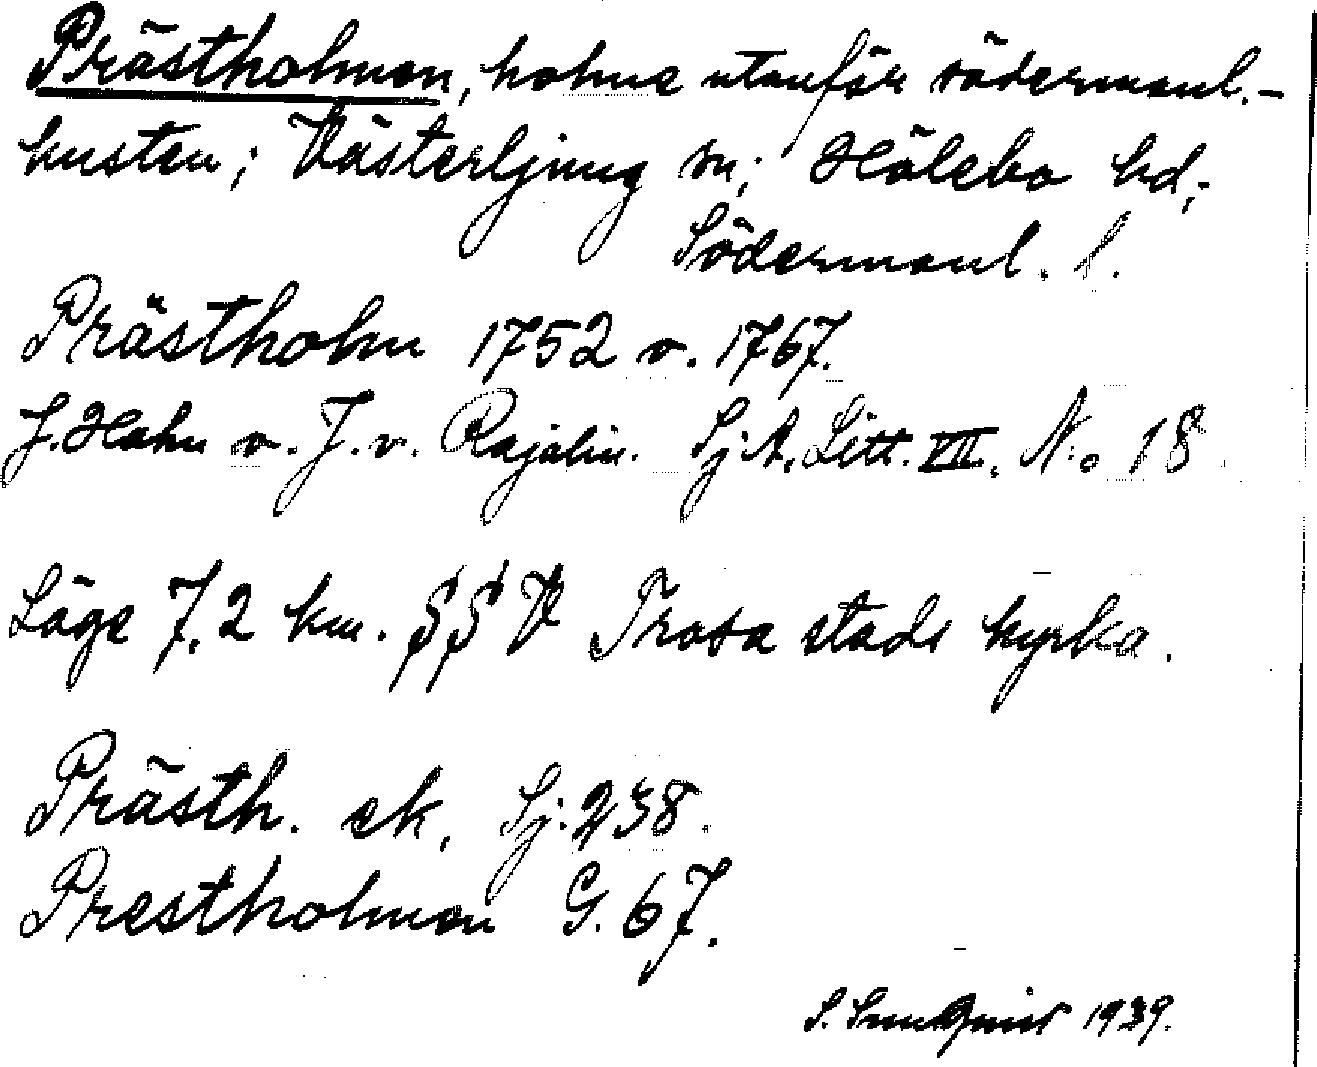 Prästholmen, holme utanför södermanl.-
kusten; Västerljung sn; Hölebo hd;
Södermanl. l.
Prästholm 1752 o. 1767.
J. Hahn o. J. v. Rajalin. Sj.A. Litt. VII. N:o 18.
Läge 7,2 km. §§V Trosa stads kyrka.
Prästh. ek. Sj. 238.
Prestholmen G. 67.
S. 1939.